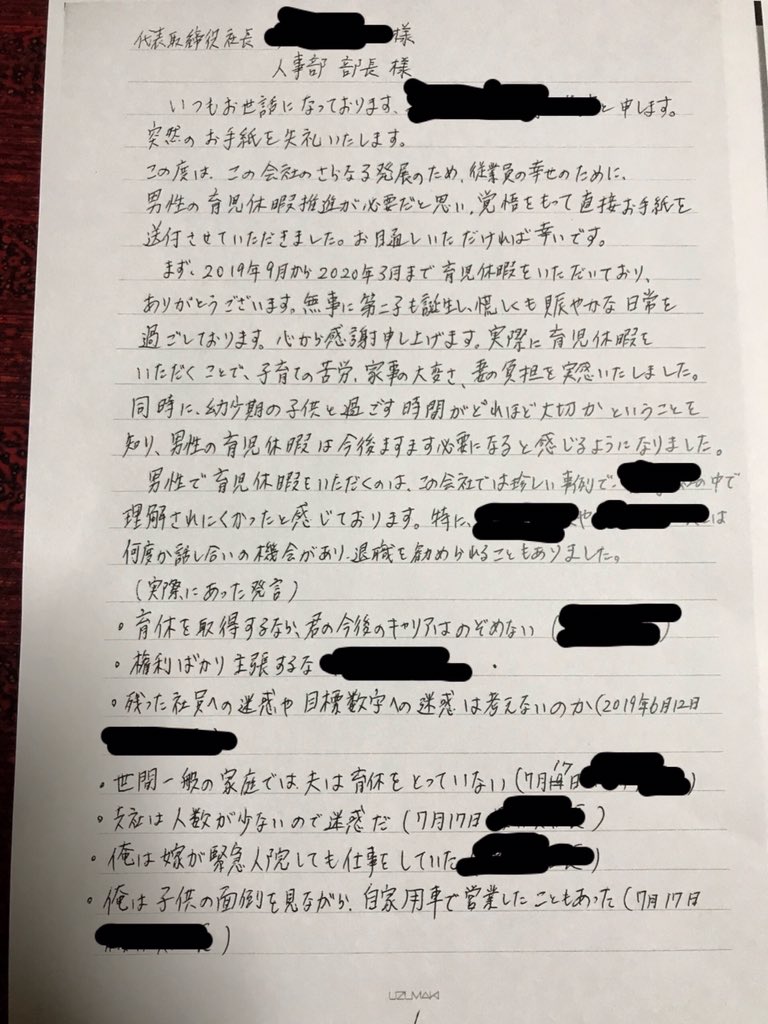 代表取締役社長 様
人事部 部長 様
いつもお世話になっております、 と申します。
突然のお手紙を失礼いたします。
この度は、この会社のさらなる発展のため、従業員の幸せのために、
男性の育児休暇推進が必要だと思い、覚悟をもって直接お手紙を
送付させていただきました。お目通しいただければ幸いです。
まず、2019年9月から2020年3月まで育児休暇をいただいており、
ありがとうございます。無事に第二子も誕生し、慌しくも賑やかな日常を
過ごしております。心から感謝申し上げます。実際に育児休暇を
いただくことで、子育ての苦労、家事の大変さ、妻の負担を実感いたしました。
同時に、幼少期の子供と過ごす時間がどれほど大切かということを
知り、男性の育児休暇は今後ますます必要になると感じるようになりました。
男性で育児休暇をいただくのは、この会社では珍しい事例で、 の中で
理解されにくかったと感じております。特に、 や は
何度か話し合いの機会があり、退職を勧められることもありました。
(実際にあった発言)
・育休を取得するなら、君の今後のキャリアはのぞめない ( )
・権利ばかり主張するな
・残った社員への迷惑や目標数字への迷惑は考えないのか(2019年6月12日
・世間一般の家庭では夫は育休をとっていない (7月17日 )
・支社は人数が少ないので迷惑だ (7月17日 )
・俺は嫁が緊急入院しても仕事をしていた )
・俺は子供の面倒を見ながら、自家用車で営業したこともあった (7月17日
)
UZUMAKI